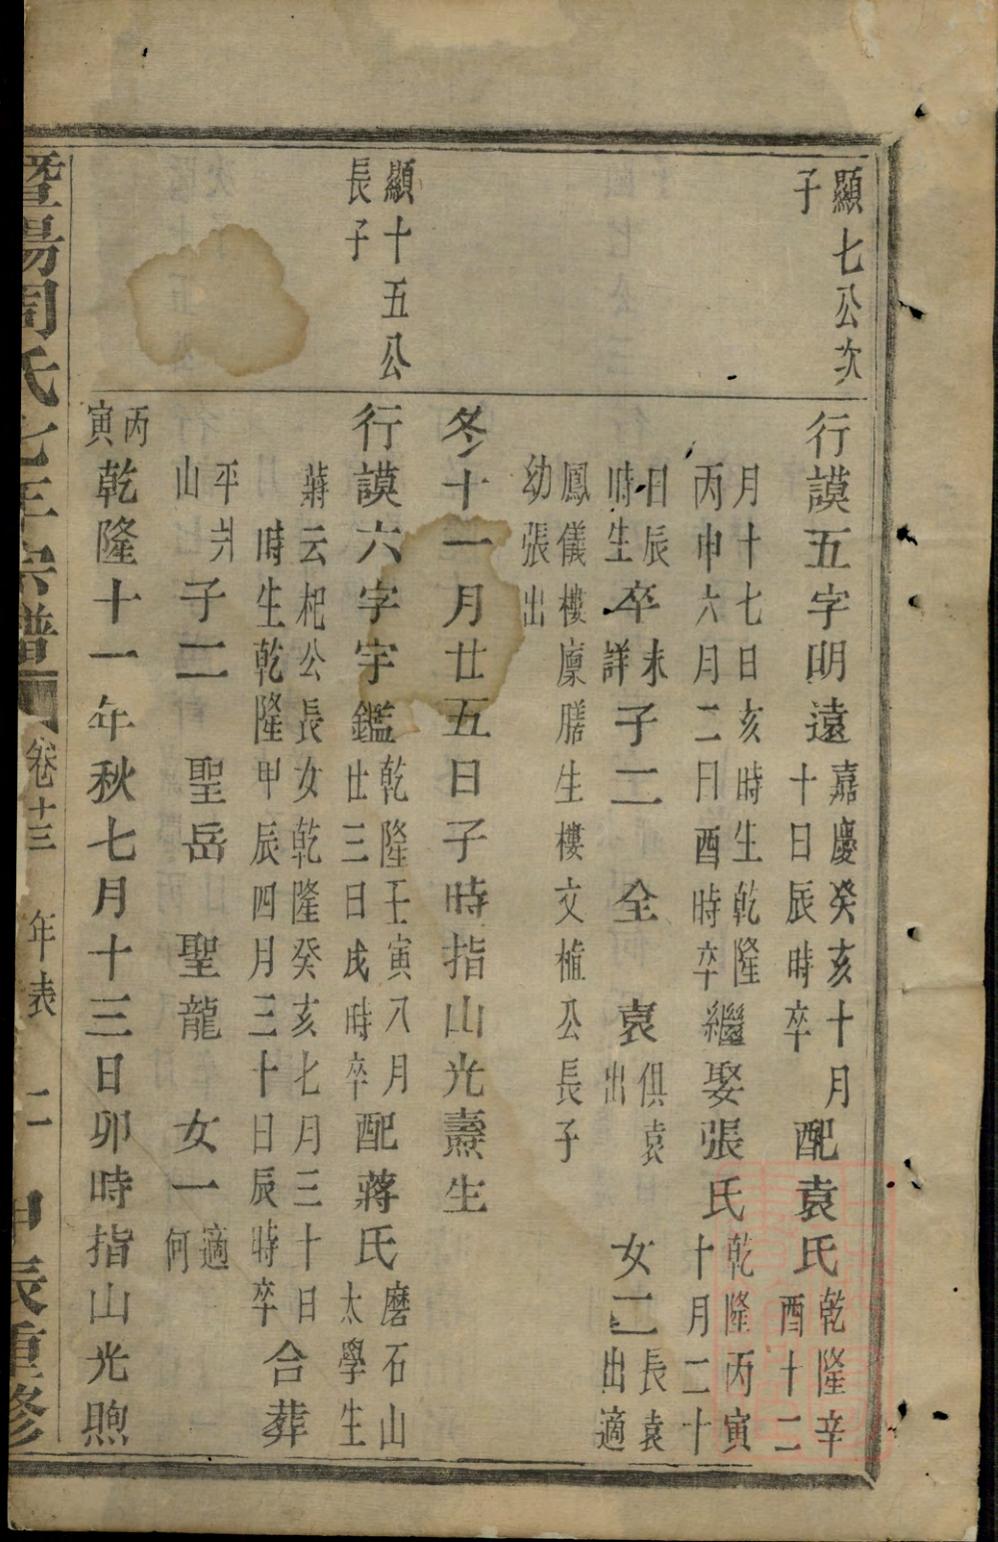 顯七公次
子
行謨五字明遠
嘉慶癸亥十月
十日辰時卒
配袁氏
乾隆辛
酉十二
月十七日亥時生乾隆
丙申六月二日酉時卒
繼娶張氏
乾隆丙寅
十月二十
日辰
時生
卒
未
詳
子二 全 袁
俱袁
出
女二
長袁
出適
鳳儀樓廩膳生樓文植公長子
幼張出
冬十一月廿五日子時指山光燾生
顯十五公
長子
行謨六字宇鑑
乾隆壬寅八月
廿三日戌時卒
配蔣氏
磨石山
太學生
蔣云杞公長女乾隆癸亥七月三十日
時生乾隆甲辰四月三十日辰時卒
合葬
平
山
子二 聖岳 聖龍 女一
適
何
丙
寅
乾隆十一年秋七月十三日卯時指山光煦
暨陽周氏宗譜 卷十三 年表 二 甲辰重修